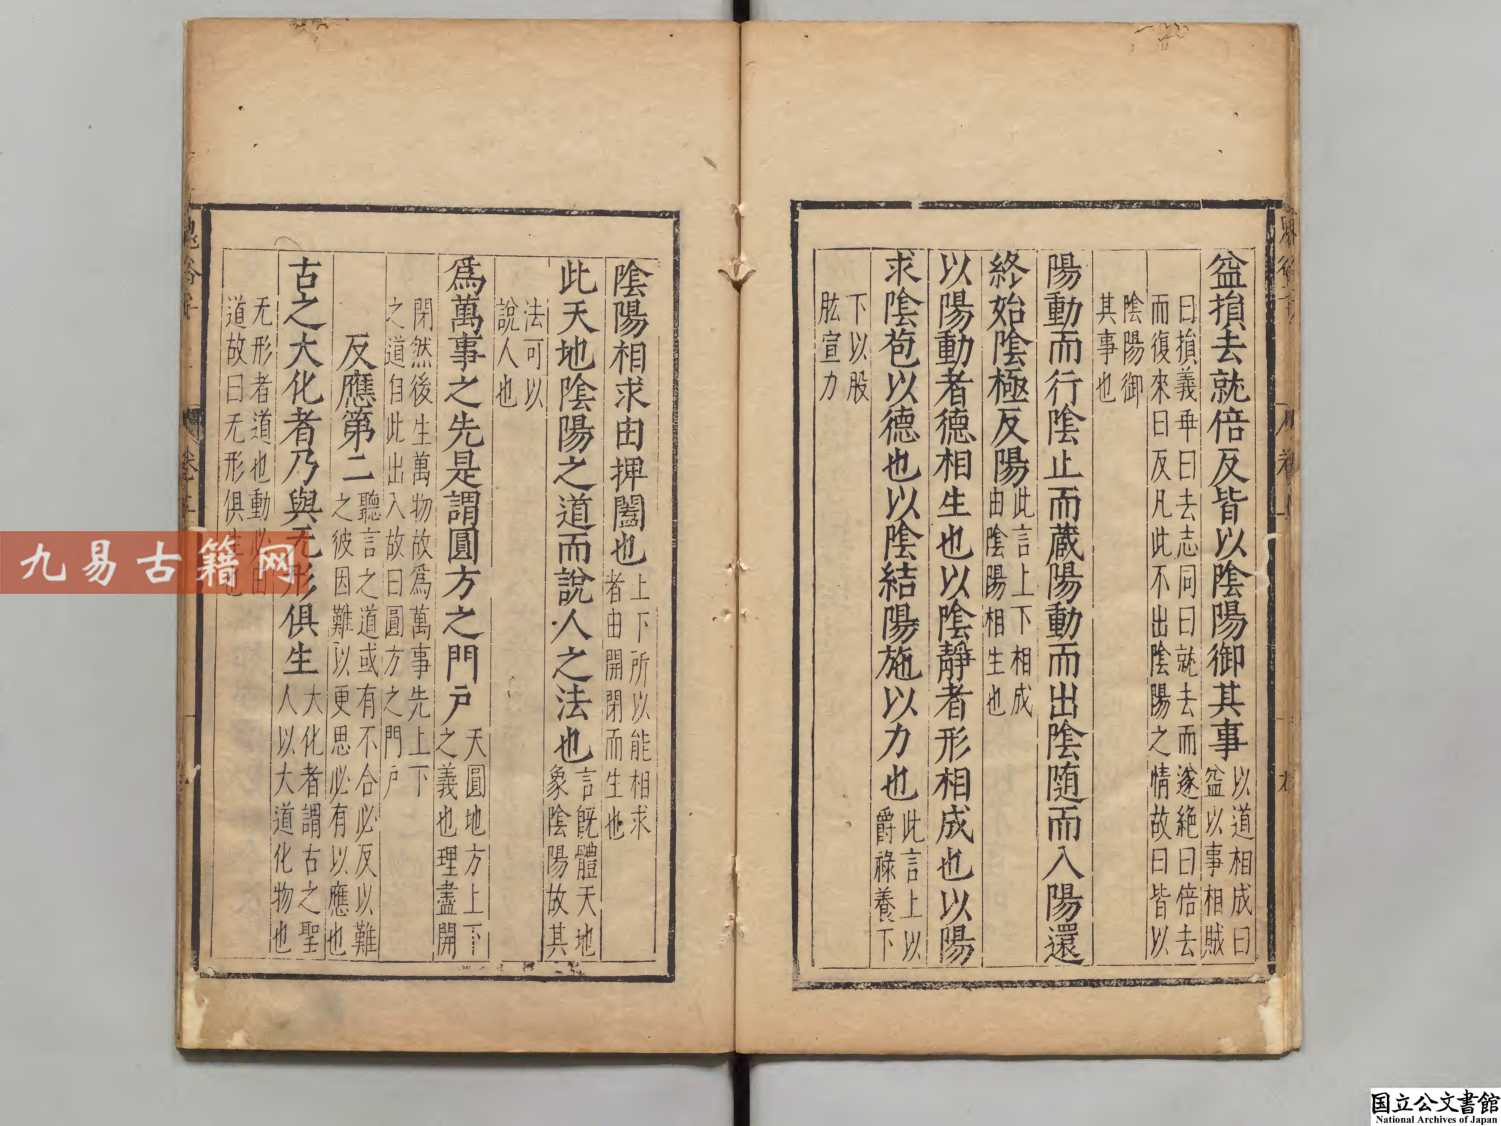 益損去就倍反皆以陰陽御其事以道相成曰益以事相賊
曰損義乖曰去志同曰就去而遂絶曰倍去而復來曰反凡此不出陰陽之情故曰皆以
陰陽御其事也
陽動而行陰止而藏陽動而出陰隨而入陽還
終始陰極反陽此言上下相成由陰陽相生也
以陽動者德相生也以陰靜者形相成也以陽
求陰苞以德也以陰結陽施以力也此言上以爵祿養下
下以股肱宣力
陰陽相求由捭闔也上下所以能相求者由開閉而生也
此天地陰陽之道而說人之法也言旣體天地象陰陽故其
法可以說人也
爲萬事之先是謂圓方之門戶天圓地方上下之義也理盡開
閉然後生萬物故爲萬事先上下之道自此出入故曰圓方之門戶
反應第二聽言之道或有不合必反以難之彼因難以更思必有以應也
古之大化者乃與无形俱生大化者謂古之聖人以大道化物也
无形者道也動必由道故曰无形俱生也
九易古籍网
国立公文書館
National Archives of Japan